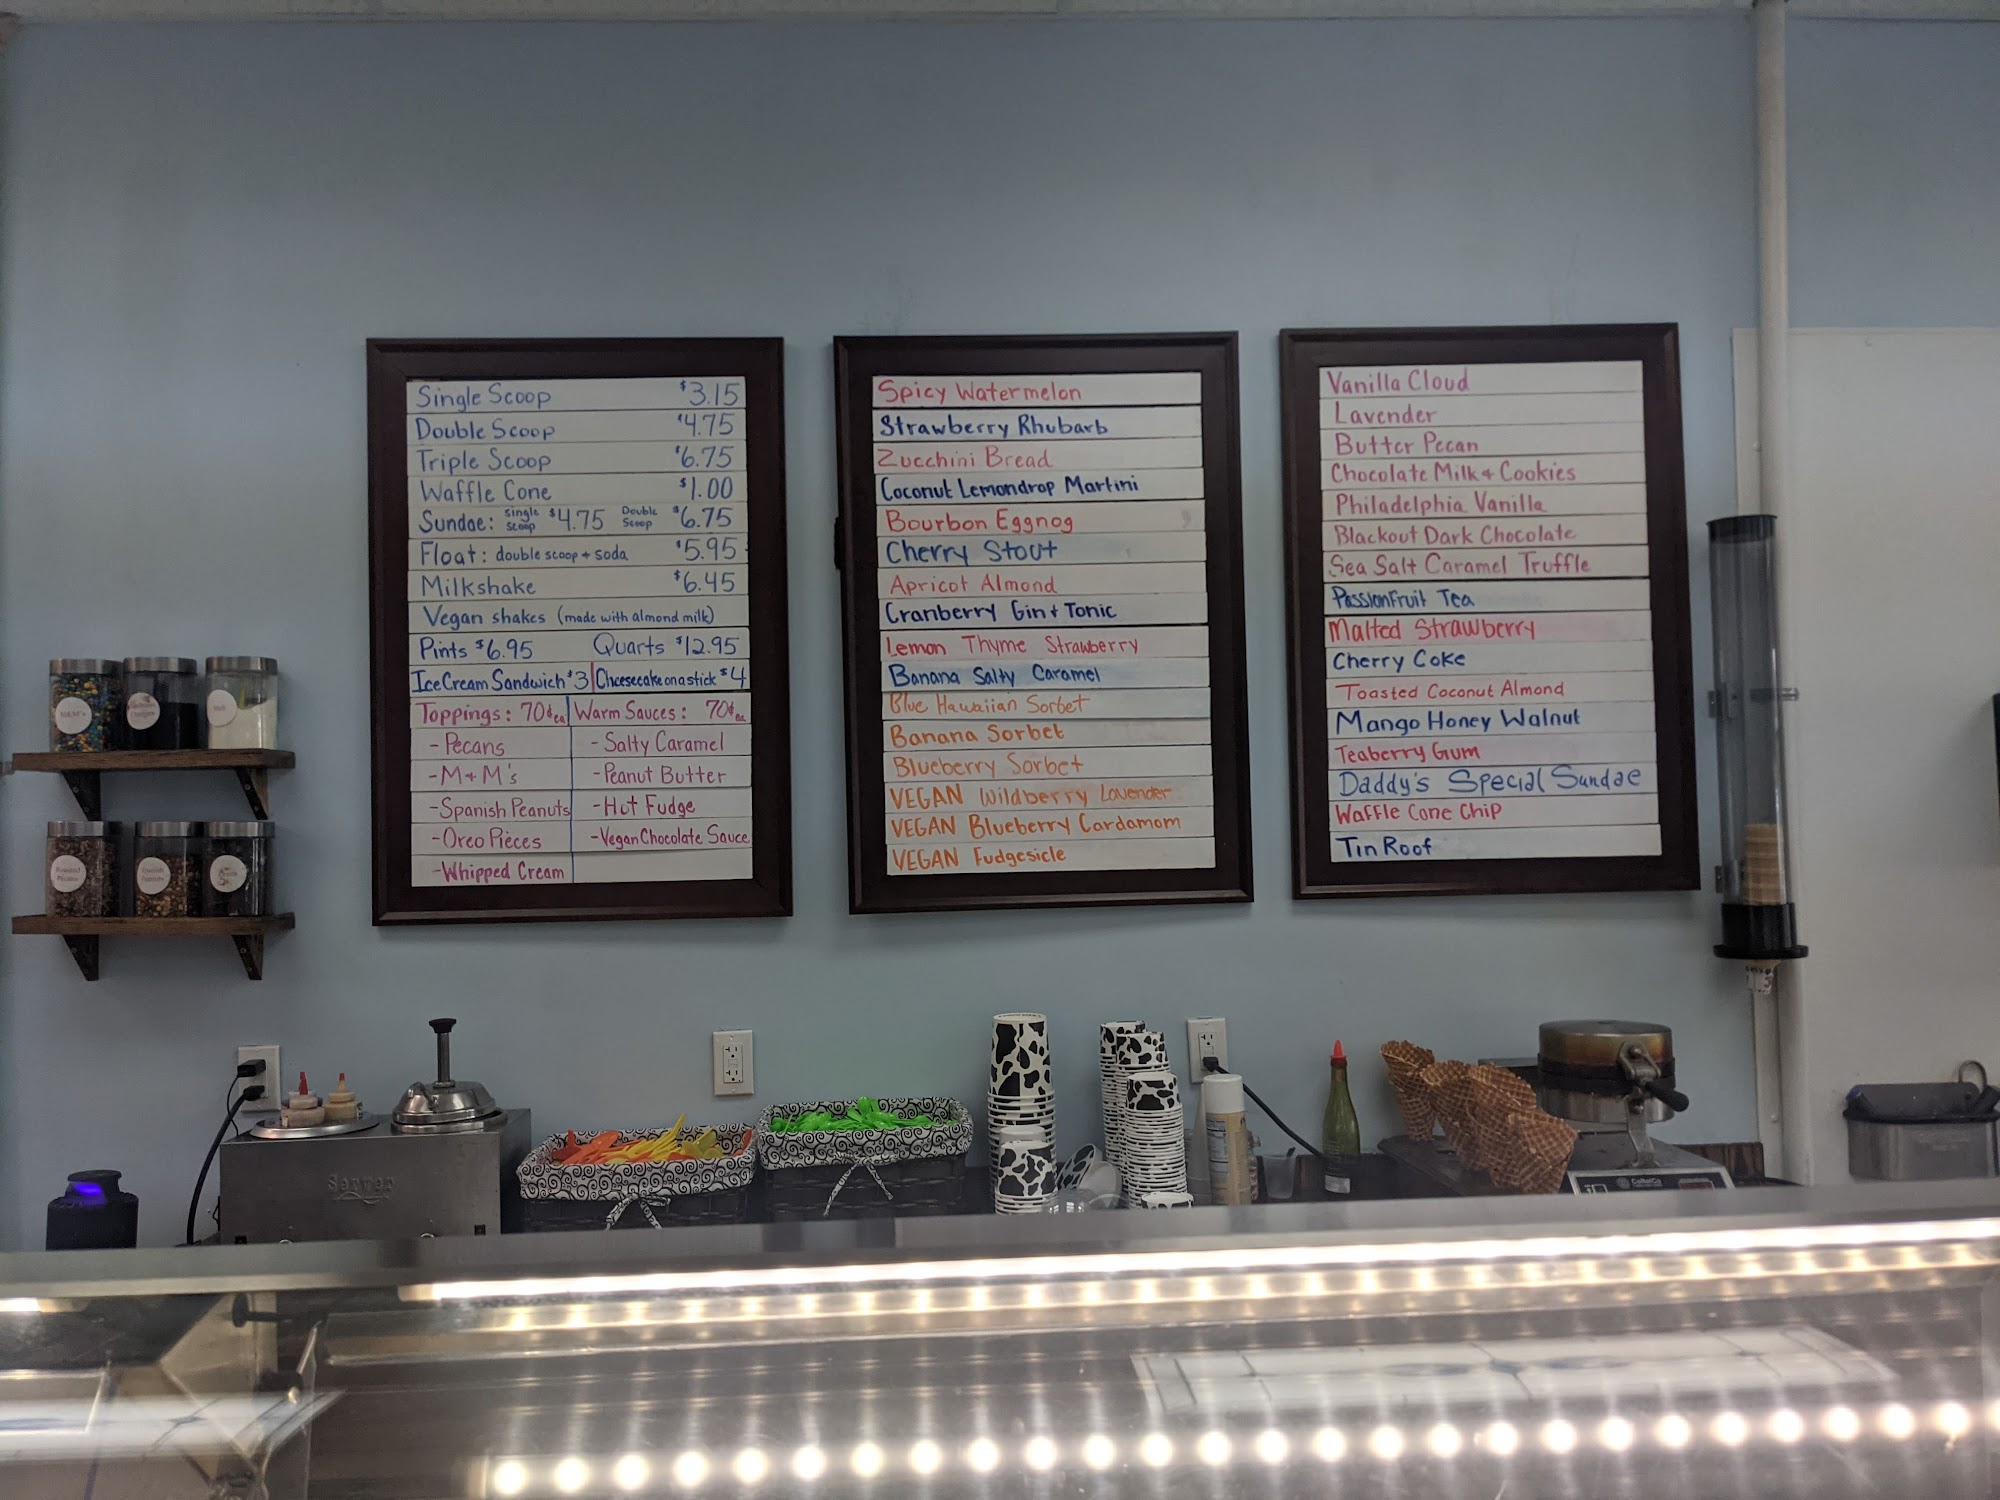 Single Scoop $3.15
Double Scoop $4.75
Triple Scoop $6.75
Waffle Cone $1.00
Sundae: single scoop $4.75 Double Scoop $6.75
Float: double scoop + soda $5.95
Milkshake $6.45
Vegan shakes (made with almond milk)
Pints $6.95 Quarts $12.95
Ice Cream Sandwich $3 Cheesecake on a stick $4
Toppings: 70¢ ea Warm Sauces: 70¢ ea
- Pecans - Salty Caramel
- M+M's - Peanut Butter
- Spanish Peanuts - Hot Fudge
- Oreo Pieces - Vegan Chocolate Sauce
- Whipped Cream
Spicy Watermelon
Strawberry Rhubarb
Zucchini Bread
Coconut Lemondrop Martini
Bourbon Eggnog
Cherry Stout
Apricot Almond
Cranberry Gin + Tonic
Lemon Thyme Strawberry
Banana Salty Caramel
Blue Hawaiian Sorbet
Banana Sorbet
Blueberry Sorbet
VEGAN Wildberry Lavender
VEGAN Blueberry Cardamom
VEGAN Fudgesicle
Vanilla Cloud
Lavender
Butter Pecan
Chocolate Milk + Cookies
Philadelphia Vanilla
Blackout Dark Chocolate
Sea Salt Caramel Truffle
PassionFruit Tea
Malted Strawberry
Cherry Coke
Toasted Coconut Almond
Mango Honey Walnut
Teaberry Gum
Daddy's Special Sundae
Waffle Cone Chip
Tin Roof
M&M's
Server